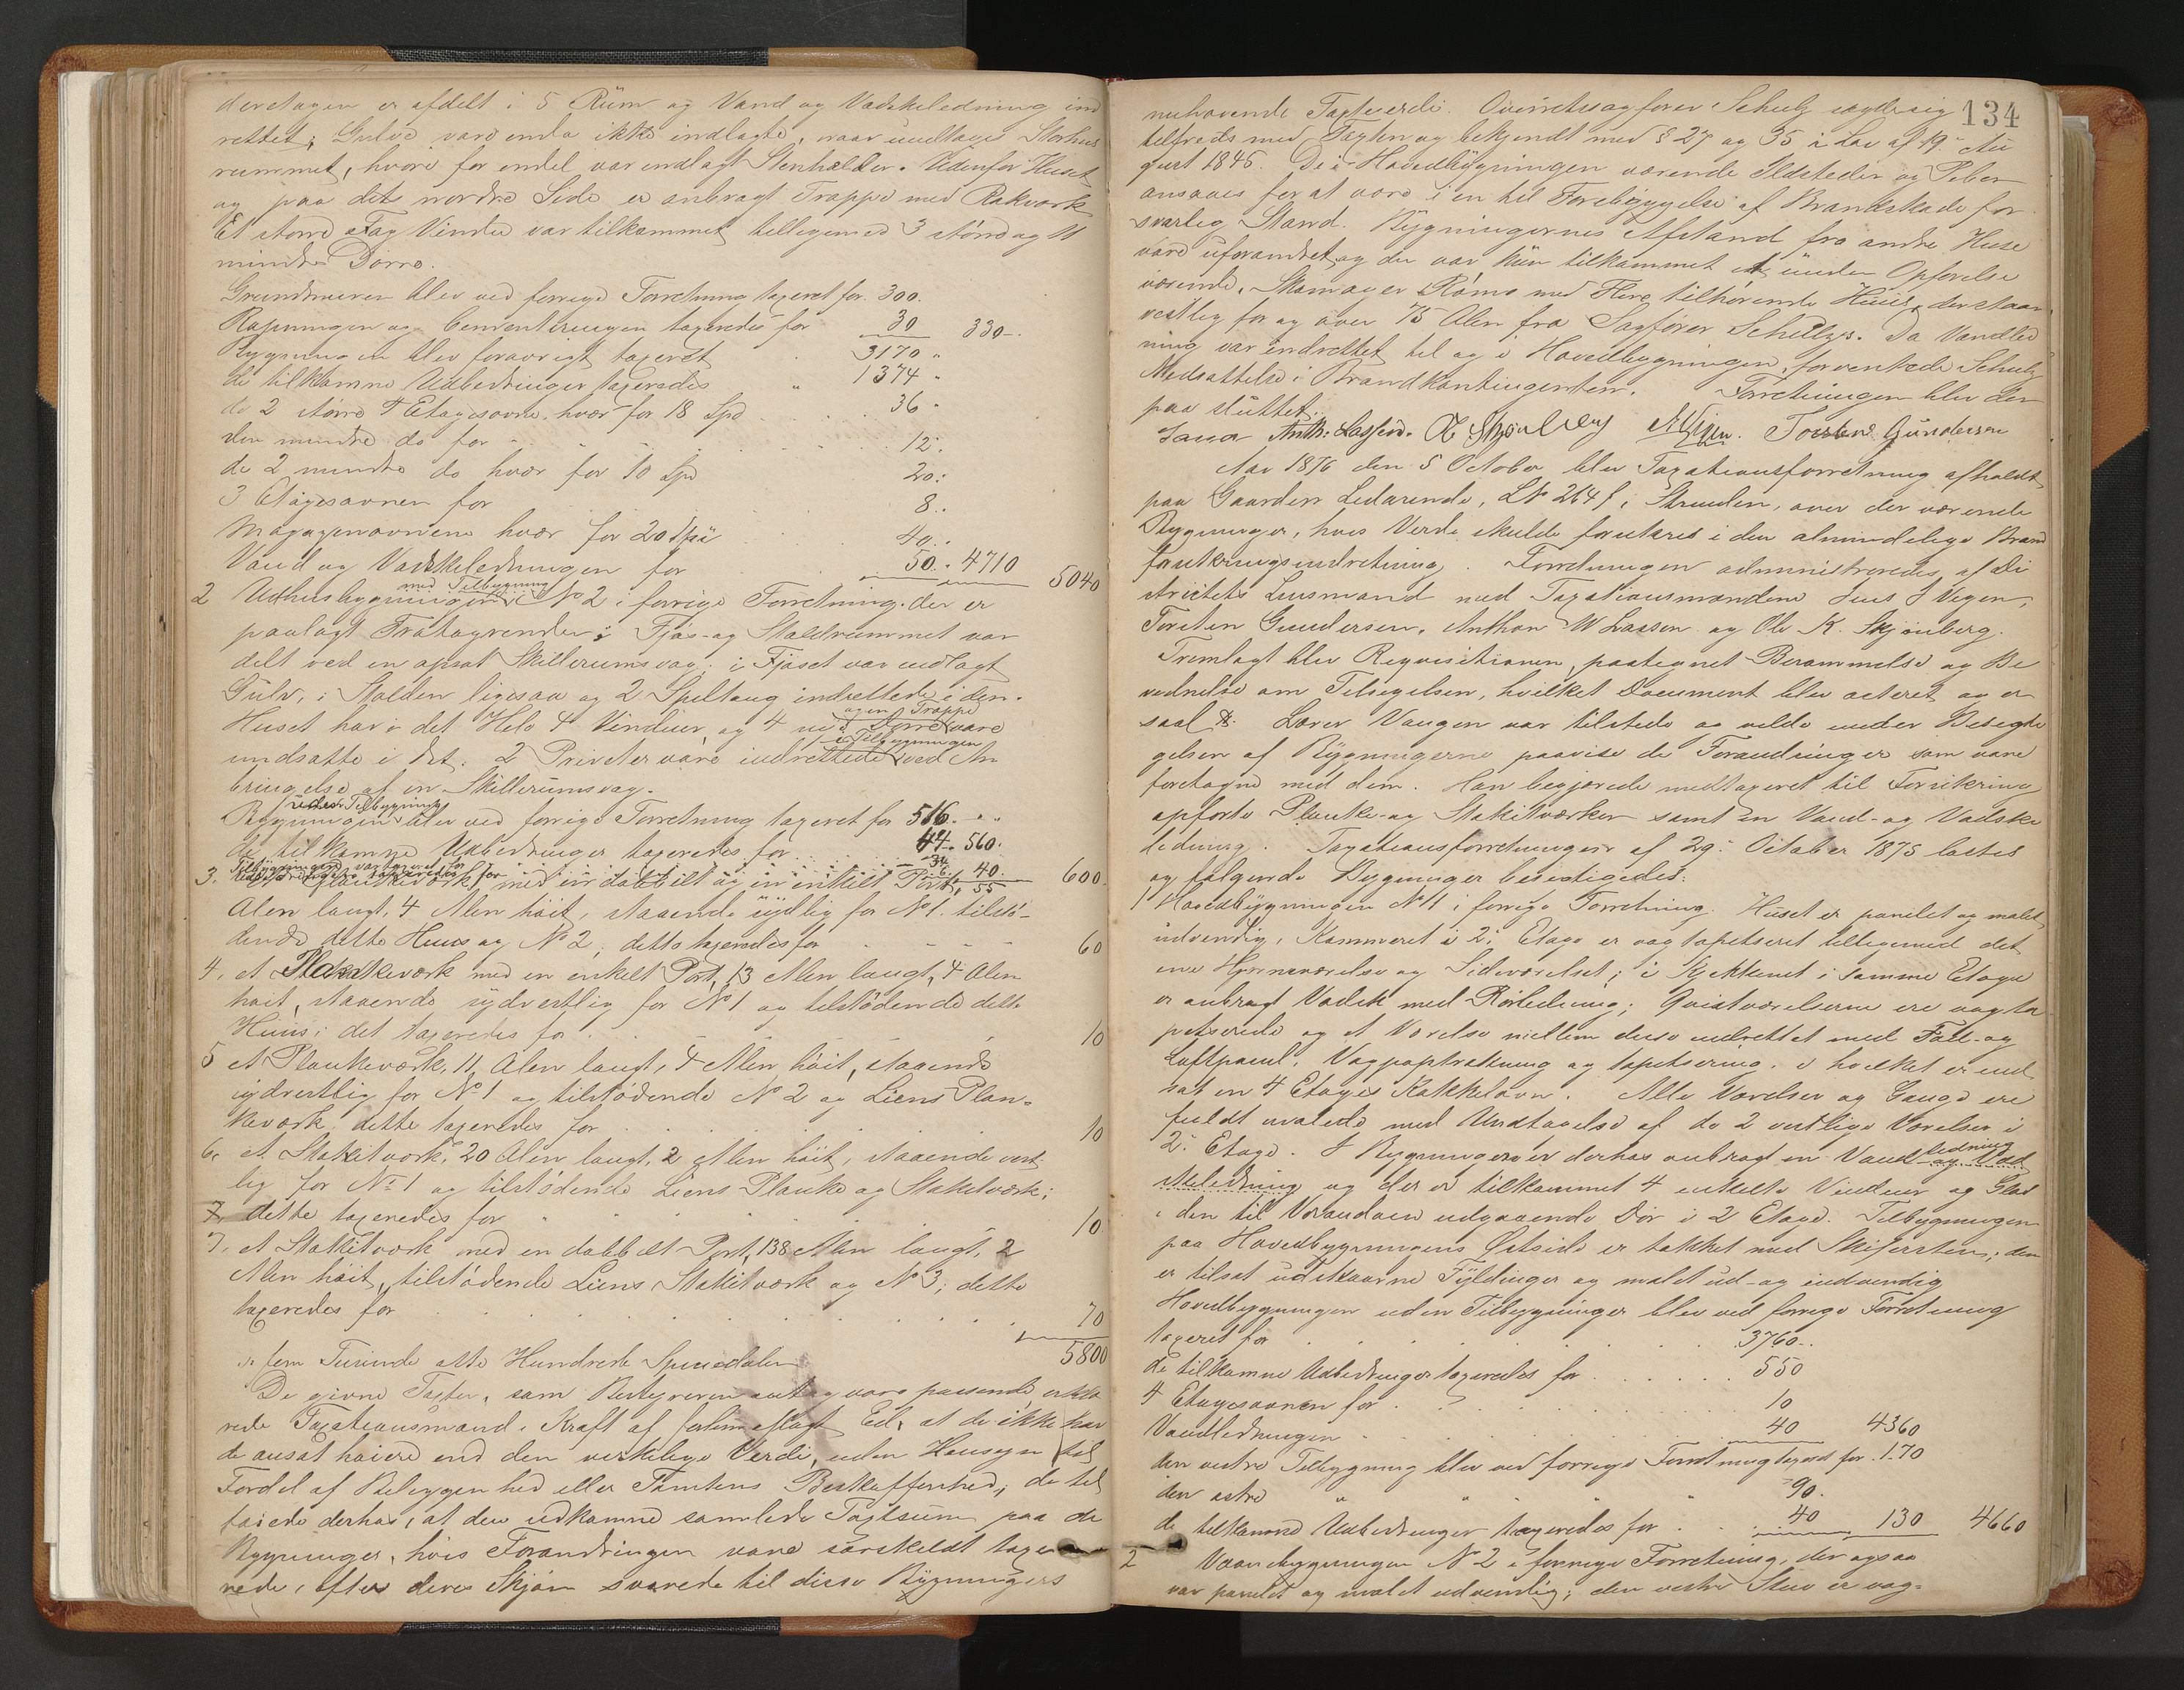 deretagen er afdelt i 5 Rum og Vand og Vadskeledning ind
rettet; Gulve vare enda ikke indlagte, naar undtages Storhus
rummet, hvori for endel var indlagt Stenhelder. Udenfor Huset
og paa dets nordre Side er anbragt Trappe med Rækværk
Et større Fag Vinduer var tilkommet tilligemed 3 større og 11
mindre Dørre.
Grundmuren blev ved forrige Forretning taxeret for 300.
Rapningen og Cementeringen taxeredes for 30 330 -
Bygningen blev forøvrigt taxeret 3170 "
de tilkomne Udbedringer taxeredes " 1374 "
de 2 større 4 Etagesovne hver for 18 Spd 36 "
den mindre do for 12.
de 2 mindre do hver for 10 Spd 20.
3 Etagesovnen for 8.
Magazinovnene hver for 20 Spd 40.
Vand og Vadskeledningen for 50. - 4710 5040
2 Udhusbygningen med Tilbygning No 2 i forrige Forretning. der er
paalagt Trætagrender; Fjøs- og Staldrummet var
delt ved en opsat Skillerumsvæg; i Fjøset var indlagt
Gulv, i Stalden ligesaa og 2 Spiltaug indrettede i den.
Huset har i det Hele 4 Vinduer og 4 nye Dørre og en Trappe vare
indsatte i det. 2 Priveter vare indrettede i Tilbygningen ved An
bringelse af en Skillerumsvæg.
Bygningen uden Tilbygning blev ved forrige Forretning taxeret for 516. "
de tilkomne Udbedringer taxeredes for 44. 560.
Tilbygningen var taxeret for 34
Udbedringerne taxeredes for 6. 40. 600
3. Et Plankeværk, med en dobbelt og en enkelt Port, 55
Alen langt, 4 Alen høit, staaende sydlig for No 1. tilstø-
dende dette Huus og No 2; dette taxeredes for 60
4, et Plankeværk med en enkelt Port, 13 Alen langt, 4 Alen
høit, staaende sydvestlig for No 1 og tilstødende dette
Huus; det taxeredes for 10
5 et Plankeværk, 11 Alen langt, 4 Alen høit, staaende
sydvestlig for No 1 og tilstødende No 2 og Liens Plan-
keværk dette taxeredes for 10
6, et Stakitværk, 20 Alen langt, 2 Alen høit, staaende vest
lig for No 1 og tilstødende Liens Planke og Stakitværk;
7, dette taxeredes for 10
7, et Stakitværk med en dobbelt Port, 138 Alen langt, 2
Alen høit, tilstødende Liens Stakitværk og No 3; dette
taxeredes for 70
er fem Tusinde otte Hundrede Speciedaler 5800
De givne Taxter, som Bestyreren antog vare passende, erklæ
rede Taxationsmænd. i Kraft af forhen aflagt Ed, at de ikke hav
de ansat høiere end den virkelige Verdi, uden Hensyn til
Fordel af Beliggenhed eller Tomtens Beskaffenhed; de til
føiede derhos, at den udkomne samlede Taxtsum paa de
Bygninger, hvis Forandringen vare særskildt taxe
rede, efter deres Skjøn svarede til disse Bygningers
134
nuhavende Taxtverdi. Overretssagfører Schulz erklærede sig
tilfreds med Taxten og bekjendt med § 27 og 35 i Lov af 19 Au
gust 1845. De i Hovedbygningen værende Ildsteder og Piber
ansaaes for at være i en til Forebyggelse af Brandskade for
svarlig Stand. Bygningernes Afstand fra andre Huse
vare uforandret og der var kun tilkommet et under Opførelse
værende, Skomager Rómo med Flere tilhørende Huus, der staar
vestlig for og over 75 Alen fra Sagfører Schultzs. Da Vandled
ning var indrettet til og i Hovedbygningen, forventede Schulz
Nedsættelse i Brandkontingenten. Forretningen blev der
paa sluttet.
Anth: Lassen. O Skjønberg Torsten Gundersen
Aar 1876 den 5 October blev Taxationsforretning afholdt
paa Gaarden Ledarende, L No 264 f, i Strinden, over der værende
Bygninger, hvis Verdi skulde forsikres i den almindelige Brand
forsikringsindretning. Forretningen administreredes af Di
strictets Lensmand med Taxationsmændene Jens J Vigen,
Torsten Gundersen, Anthon W Lassen og Ole K. Skjønberg.
Fremlagt blev Reqvisitionen, paategnet Berammelse og Be
vidnelse om Tilsigelsen, hvilket Document blev acteret og er
saal. Lærer Vaugen var tilstede og vilde under Besigti
gelsen af Bygningerne paavise de Forandringer som vare
foretagne med dem. Han begjærede medtaxeret til Forsikring
opførte Planke- og Stakitværker samt en Vand- og Vadske
ledning. Taxationsforretningen af 29. October 1875 læstes
og følgende Bygninger besigtigedes:
1 Hovedbygningen No 1 i forrige Forretning. Huset er panelet og malet
udvendig, Kammeret i 2. Etage er vægtapetseret tilligemed det
ene Hjørneværelse og Sideværelset; i Kjøkkenet i samme Etage
er anbragt Vadsk med Rørledning; Qvistværelserne ere vægta
petserede og et Værelse mellem disse indrettet med Fall- og
Loftpanel, Vægpaptrækning og tapetsering, i hvilket er ind
sat en 4 Etages Kakkelovn. Alle Værelser og Gange ere
fuldt malede med Undtagelse af de 2 vestlige Værelser i
2. Etage. I Bygningen er derhos anbragt en Vandledning og Vad
skeledning og der er tilkommet 4 enkelte Vinduer og Glas
i den til Verandaen udgaaende Dør i 2 Etage. Tilbygningen
paa Hovedbygningens Østside er takket med Skifersten; den
er tilsat udskaarne Fyldinger og malet ud- og indvendig
Hovedbygningen uden Tilbygninger blev ved forrige Forretning
taxeret for 3760.
de tilkomne Udbedringer taxeredes for 550
4 Etagesovnen for 10
Vandledningen 40 4360
den vestre Tilbygning blev ved forrige Forretning taxeret for 170
den østre " " " 90.
de tilkomne Udbedringer taxeredes for 40 130 4660
2 Vaanebygningen No 2 i forrige Forretning, der ogsaa
var panelet og malet udvendig; den vestre Stue er væg-